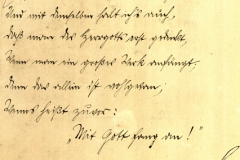 Und mit demselben halt ich's auch,
daß man des Herrgotts erst gedenkt,
Wenn man ein großes Werk anfängt.
Denn das allein ist wohlgetan,
Wenns heißt zuvor:
„Mit Gott fang an!"